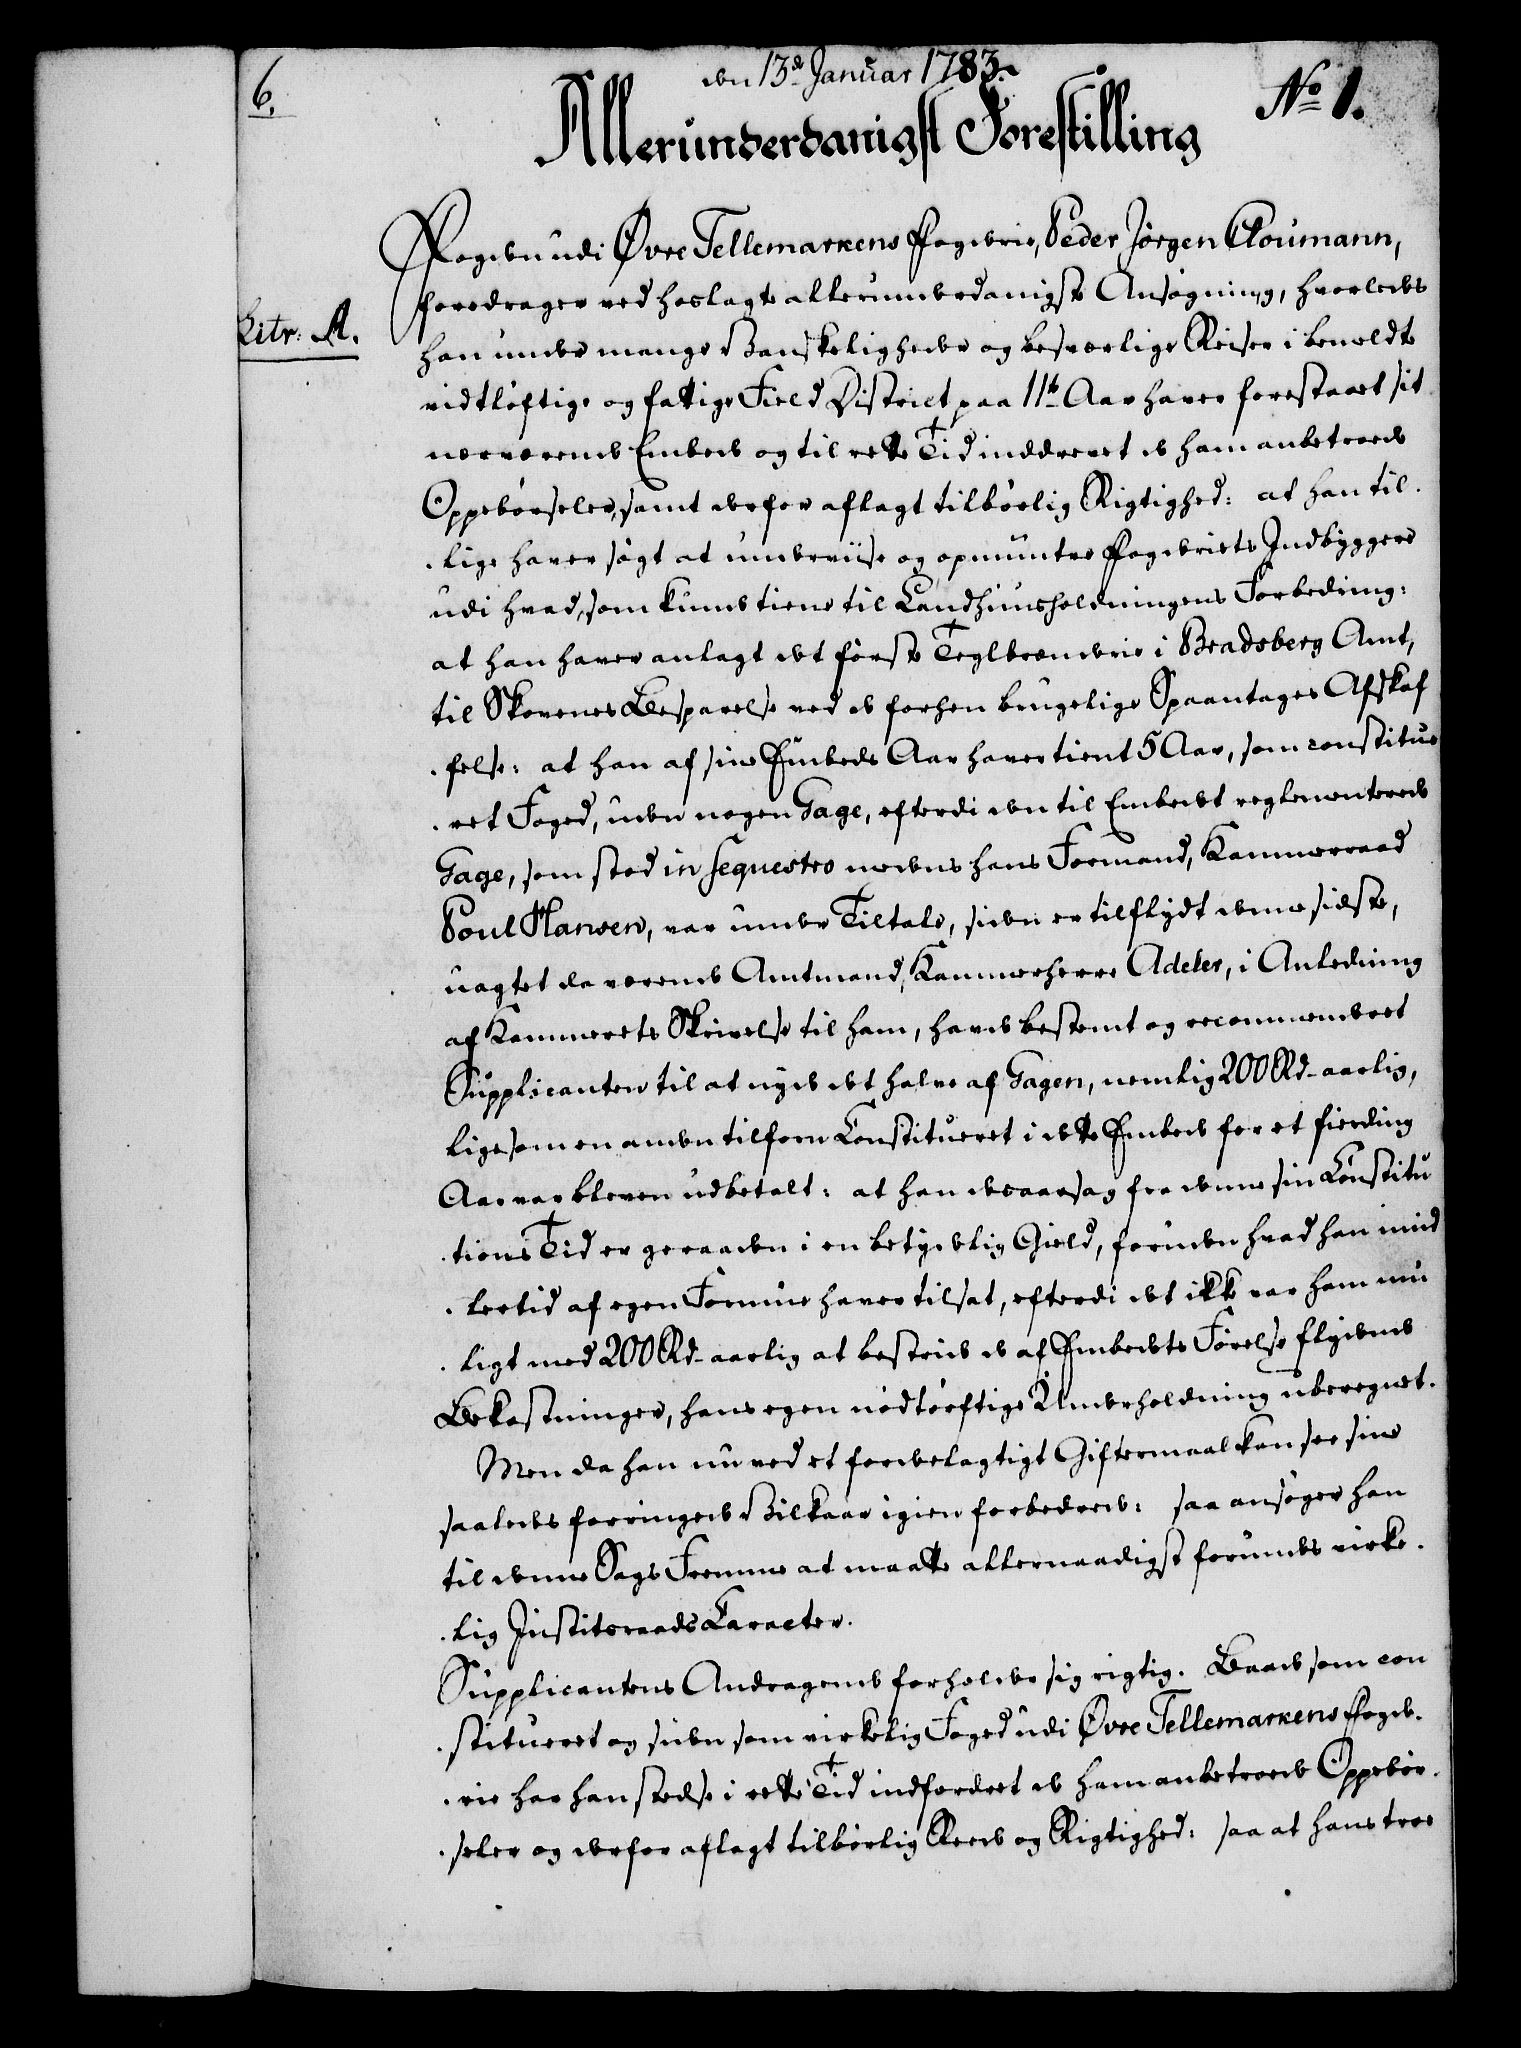 6.
den 13de Januar 1783.
No 1.
Allerunderdanigst Forestilling
Fogden udi Øvre Tellemarkens Fogderie, Peder Jörgen Cloumann,
foredrager ved hoslagte allerunderdanigste Ansøgning, hvorledes
Litr: A.
han under mange Vanskeligheder og besværlige Reiser i bemeldte
vidtløftige og fattige Field District paa 11te Aar haver forestaaet sit
nærværende Embede og til rette Tid inddrevet de ham anbetroede
Oppebørseler, samt derfor aflagt tilbørlig Rigtighed: at han til
lige haver søgt at underviise og opmuntre Fogderiets Indbyggere
udi hvad, som kunde tiene til Landhuusholdningens Forbedring:
at han haver anlagt det første Teglbrænderie i Bradsberg Amt,
til Skovenes Besparelse ved de forhen brugelige Spaantages Afskaf
felse: at han af sine Embeds Aar haver tient 5 Aar, som constitue
ret Foged, uden nogen Gage, efterdi den til Embedet reglementerede
Gage, som stod in sequestro medens hans Formand, Kammerraad
Poul Hansen, var under Tiltale, siden er tilflydt denne sidste,
uagtet da værende Amtmand, Kammerherre Adeler, i Anledning
af Kammerets Skrivelse til ham, havde bestemt og recommenderet
Supplicanten til at nyde det halve af Gagen, nemlig 200 Rd. aarlig,
ligesom en anden tilforn Constitueret i dette Embede for et fierding
Aar var bleven udbetalt: at han desaarsag fra denne sin Constitu
tions Tid er geraaden i en betydelig Gield, foruden hvad han imid
lertid af egen Formue haver tilsat, efterdi det ikke var ham mu
ligt med 200 Rd. aarlig at bestride de af Embedets Førelse flydende
Bekostninger, hans egen nødtørftige Underholdning uberegnet.
Men da han nu ved et fordelagtigt Giftermaal kan see sine
saaledes forringede Vilkaar igien forbedrede: saa ansøger han
til denne Sags Fremme at maatte allernaadigst forundes virke
lig Justitsraads Caracter.
Supplicantens Andragende forholder sig rigtig. Baade som con
stitueret og siden som virkelig Foged udi Øvre Tellemarkens Fogde
rie har han stedse i rette Tid indfordret de ham anbetroede Oppebør
seler og derfor aflagt tilbørlig Rede og Rigtighed: saa at hans troe